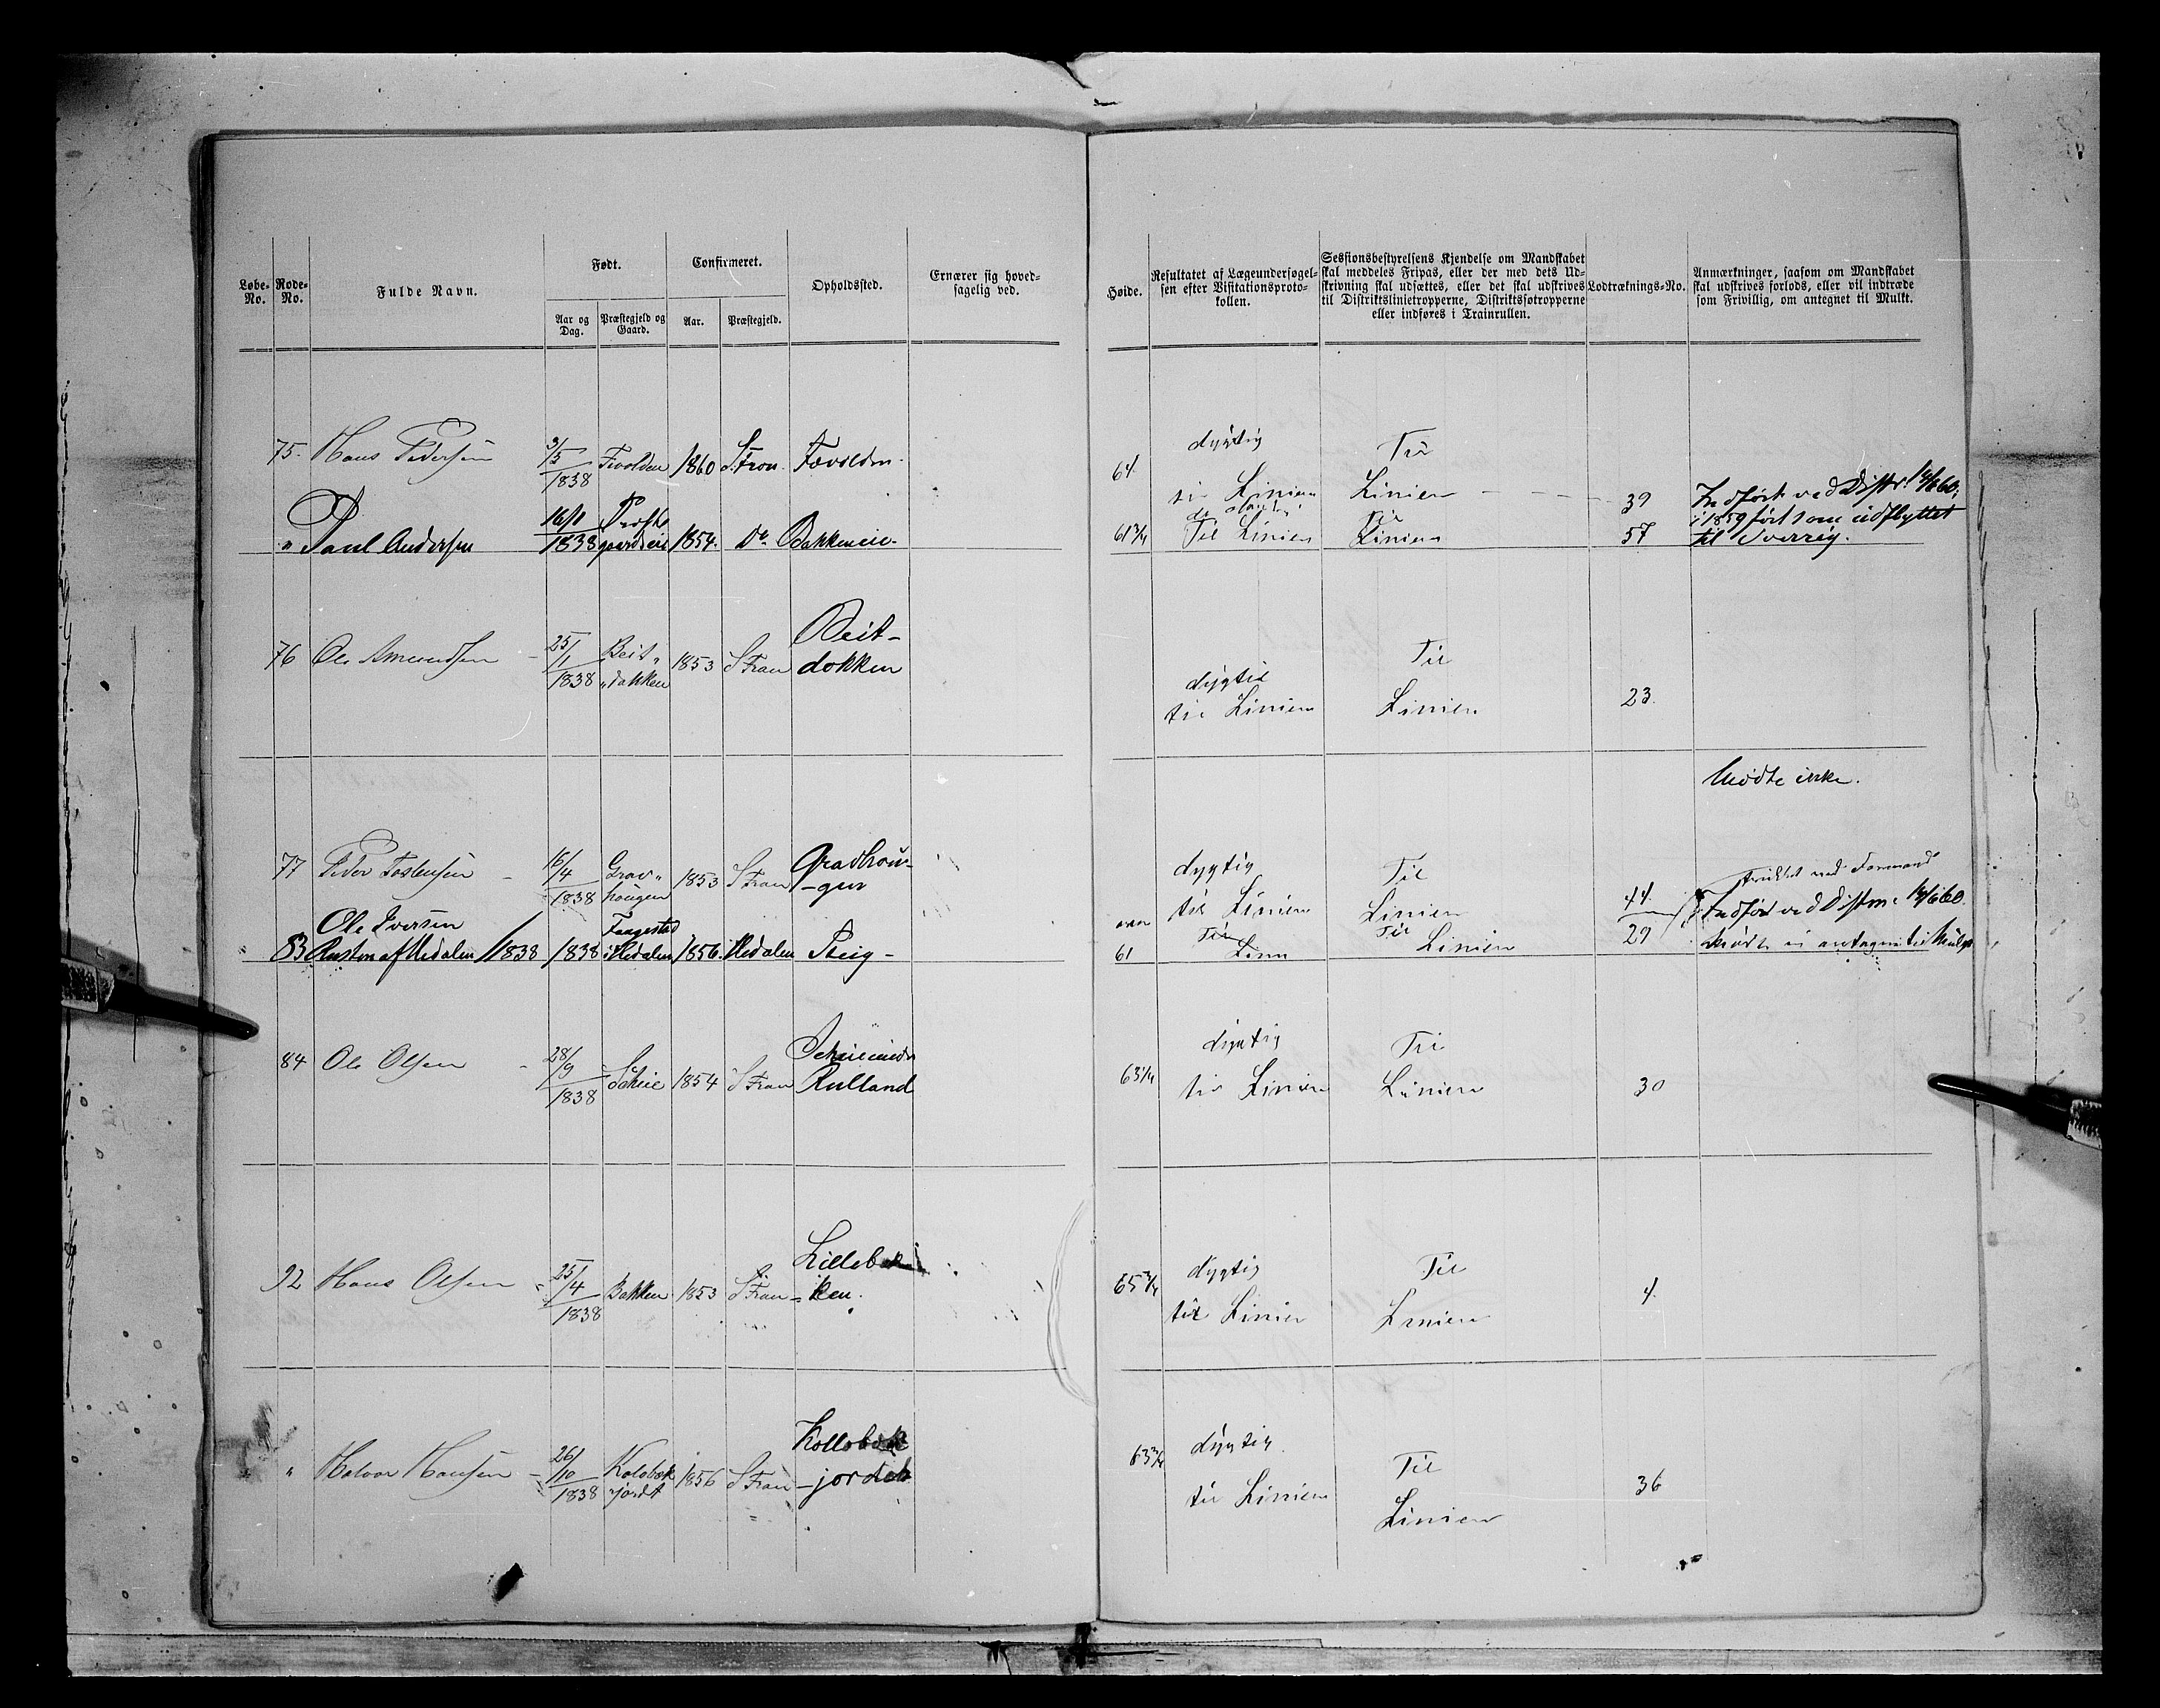 Løbe-No.
Rode-No.
Fulde Navn.
Født.
Aar og Dag.
Præstegjeld og Gaard.
Confirmeret.
Aar.
Præstegjeld.
Opholdssted.
Ernærer sig hoved-
sagelig ved.
Høide.
Resultatet af Lægeundersøgel-
sen efter Visitationsproto-
kollen.
Sessionsbestyrelsens Kjendelse om Mandskabet
skal meddeles Fripas, eller der med dets Ud-
skrivning skal udsættes, eller det skal udskrives
til Distriktslinietropperne, Distriktsfotropperne
eller indføres i Trainrullen.
Lodtræknings-No.
Anmærkninger, saasom om Mandskabet
skal udskrives forlods, eller vil indtræde
som Frivillig, om antegnet til Mulkt.
75. Hans Pedersen 3/5 1838 1860 S. Fron. 64 dygtig Til
Linien Linien 39 Indført ved Distr. 14/6 60,
i 1859 ført som udflyttet
" Paul Andersen 16/1 1838 1854. Do. Bakkeneie 61 3/4 Til Linien Til Linien 57 til Sverrig.
76 Ole Amundsen 25/1 1838 Beit-
dokken 1853 S Fron Beit-
dokken dygtig Til
til Linien Linien 23.
Mødte ikke.
77 Peder Tostensen 16/4 1838 Grav-
haugen 1853 S Fron dygtig Til
til Linien Linien 44
Indført ved Distr. 14/6 60
83 Ole Iversen
af Hedalen 1838 1838 i Hedalen 1856. Hedalen Steig 61 Til Linien Til Linien 29
84 Ole Olsen 28/9 1838 Scheie 1854 S Fron
Rulland 63 1/4 dygtig Til
til Linien Linien 30
92 Hans Olsen 25/4 1838 Bakken 1853 S. Fron Lillebak-
ken. 65 3/4 dygtig Til
til Linien Linien 4.
" Halvor Hansen 26/10 1838 Kolobæk
jordt 1856 S Fron Kollobæk
-jordet 63 3/4 dygtig Til
til Linien Linien 36